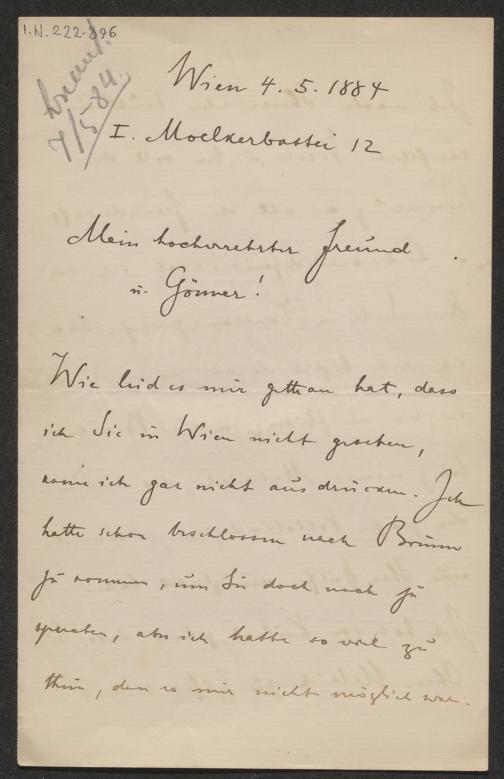 I.N. 222.896
7/5 84.
Wien 4. 5. 1884
I. Moelkerbastei 12
Mein hochverehrter Freund
u. Gönner!
Wie leid es mir gethan hat, dass
ich Sie in Wien nicht gesehen,
kann ich gar nicht ausdrücken. Ich
hatte schon beschlossen nach Brünn
zu kommen, um Sie doch noch zu
sprechen, aber ich hatte so viel zu
thun, dass es mir nicht möglich war.